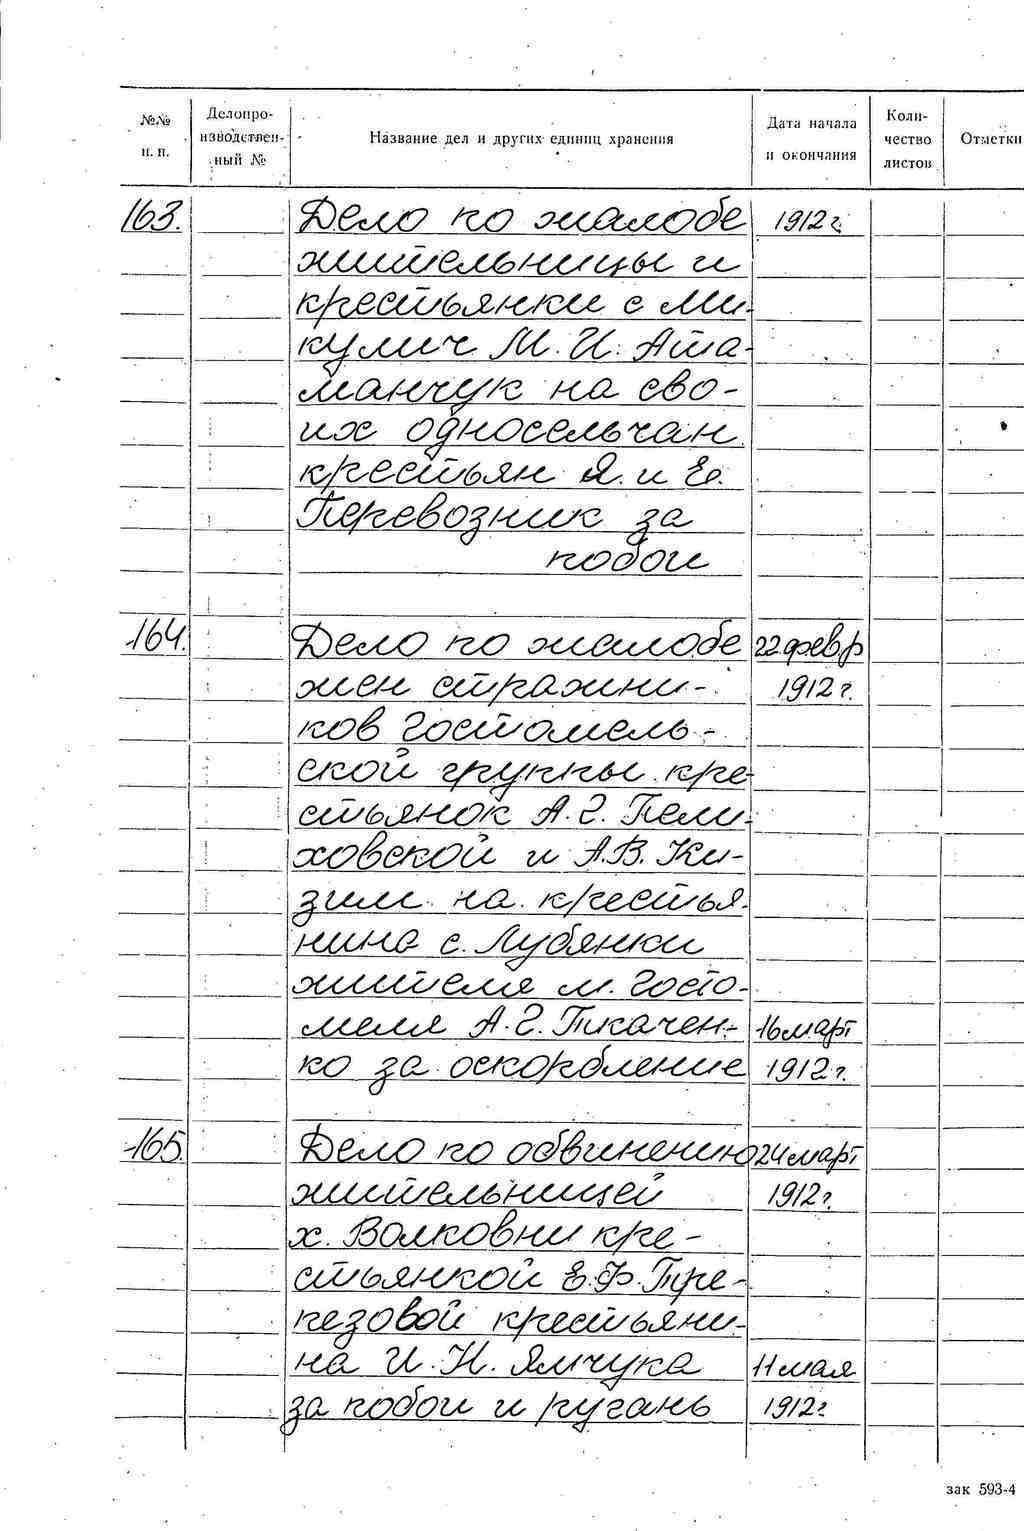 №№ п. п. Делопро- изводствен- ный № Название дел и других единиц хранения Дата начала и окончания Коли- чество листов Отметки
163. Дело по жалобе 1912 г.
жительницы и
крестьянки с Ми-
кулич М. И. Ата-
манчук на сво-
их односельчан
крестьян Я. и Е.
Перевозник за
побои
164. Дело по жалобе 22 февр
жен стражни- 1912 г.
ков Гостомель-
ской группы кре-
стьянок А. Г. Пели-
ховской и А. В. Ки-
зим на крестья-
нина с. Лубянки
жителя м. Госто-
меля А. Г. Ткачен- 16 март
ко за оскорбление 1912 г.
165. Дело по обвинению 24 март
жительницей 1912 г.
х. Волковни кре-
стьянкой Е. Ф. Тре-
пезовой крестьяни-
на И. Н. Ямчука 11 мая
за побои и ругань 1912 г.
зак 593-4